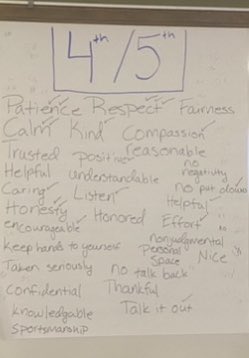 4th/5th
Patience Respect Fairness
Calm Kind Compassion
Trusted positive reasonable
Helpful understandable no negativity
Caring Listen no put downs
Honesty Honored Helpful
encourageable Effort
Keep hands to yourself nonjudgmental personal space Nice
Taken seriously no talk back
Confidential Thankful
knowledgable Talk it out
Sportsmanship